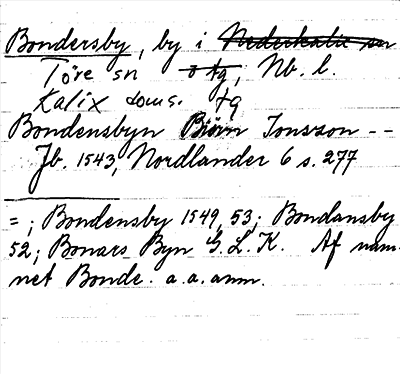 Bondersby, by i Nederkalix sn
Töre sn o tg, Nb. l.
Kalix doms. tg
Bondensbyn Biörn Jonsson --
Jb. 1543, Nordlander 6 s. 277
= ; Bondensby 1549, 53; Bondansby
52; Bonars Byn G. L. K. Af nam-
net Bonde. a. a. anm.